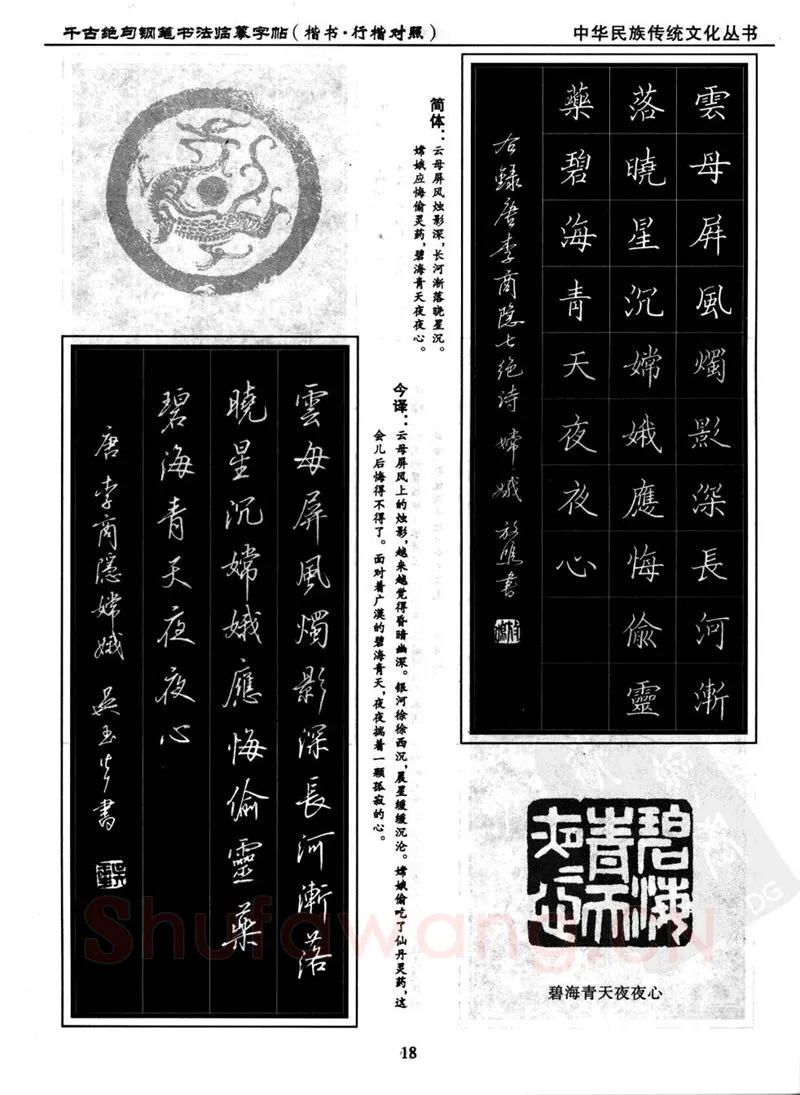 千古绝句钢笔书法临摹字帖(楷书·行楷对照)
中华民族传统文化丛书
雲母屏風燭影深長河漸
落曉星沉嫦娥應悔偷靈
藥碧海青天夜夜心
右錄唐李商隐七绝诗嫦娥
书
简体:云母屏风烛影深,长河渐落晓星沉。
嫦娥应悔偷灵药,碧海青天夜夜心。
今译:云母屏风上的烛影,越来越觉得昏暗幽深。银河徐徐西沉,晨星缓缓沉沦。嫦娥偷吃了仙丹灵药,这
会儿后悔得不得了。面对着广漠的碧海青天,夜夜揣着一颗孤寂的心。
雲母屏風燭影深長河漸落
曉星沉嫦娥應悔偷靈藥
碧海青天夜夜心
唐李商隱嫦娥 吴玉生書
碧海青天夜夜心
碧海青天夜夜心
Shufawang.CN
18